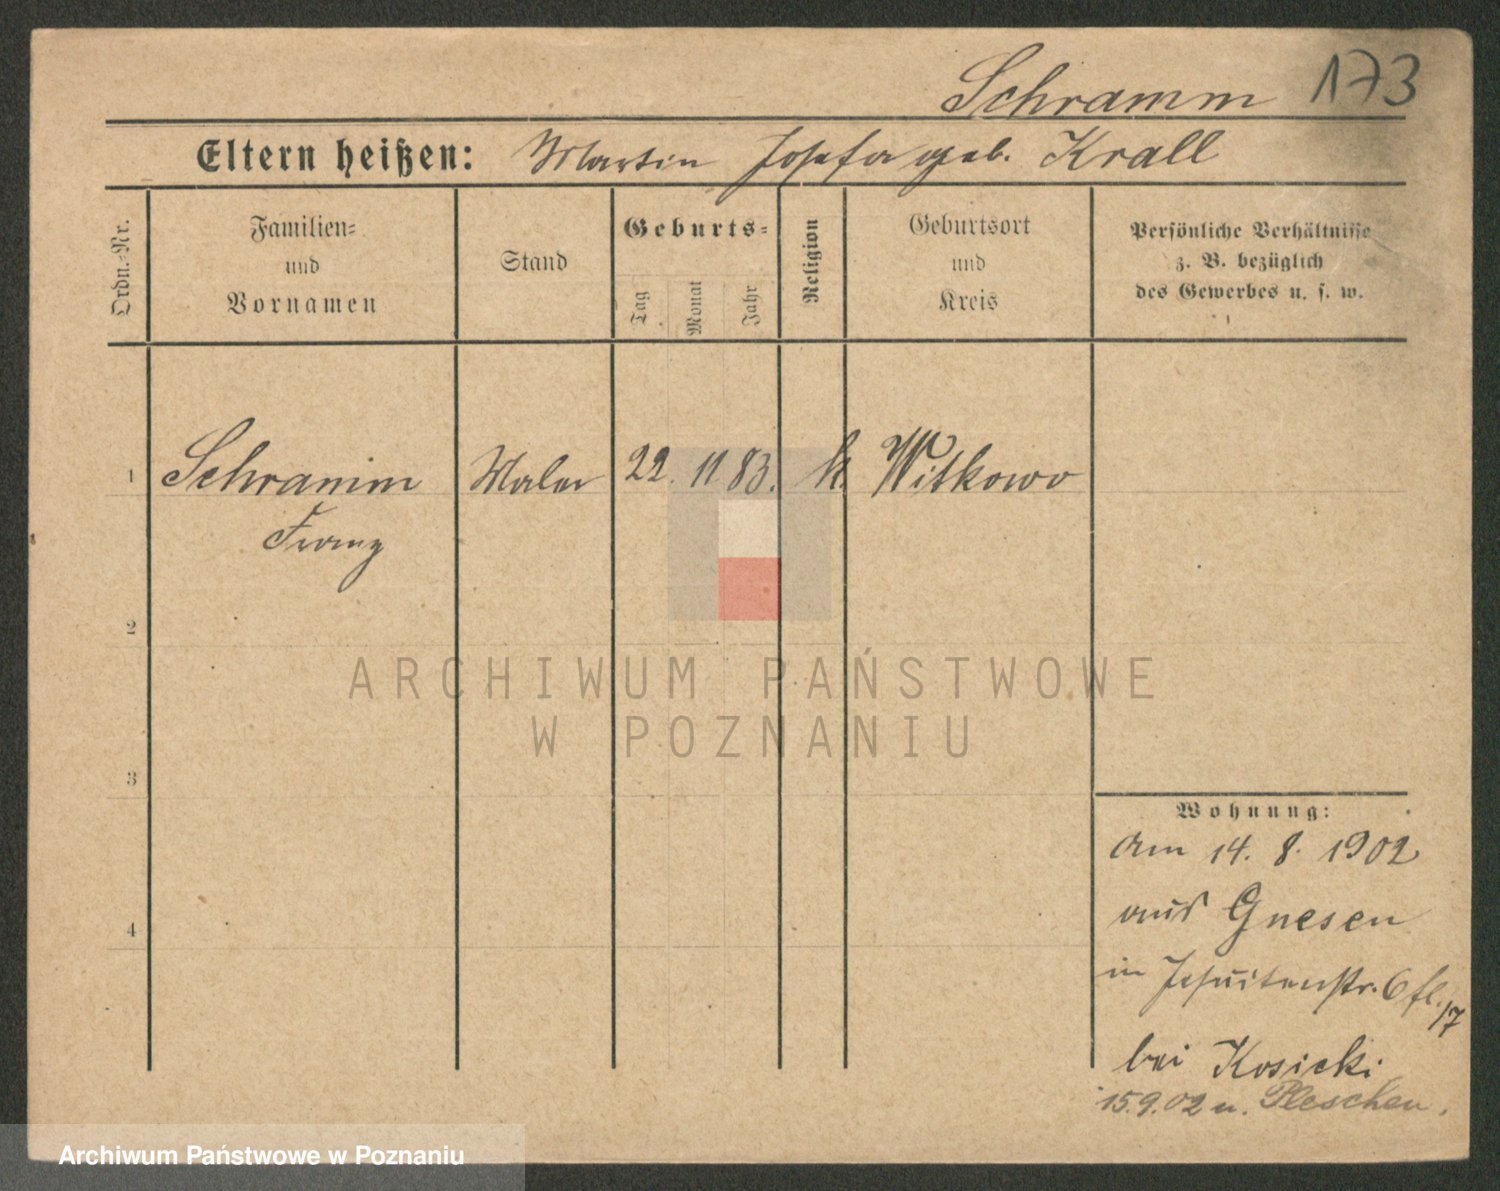 Schramm 173
Eltern heißen: Martin Josefa geb. Krall
Ordn.-Nr.
Familien-
und
Vornamen
Stand
Geburts-
Tag
Monat
Jahr
Religion
Geburtsort
und
Kreis
Persönliche Verhältnisse
z. B. bezüglich
des Gewerbes u. s. w.
1 Schramm Maler 22. 11 83. k. Witkowo
Franz
2
3
4
ARCHIWUM PAŃSTWOWE
W POZNANIU
Wohnung:
Am 14. 8. 1902
aus Gnesen
in Jesuitenstr. 6 fl. 17
bei Kosicki
15.9.02 n. Pleschen.
Archiwum Państwowe w Poznaniu